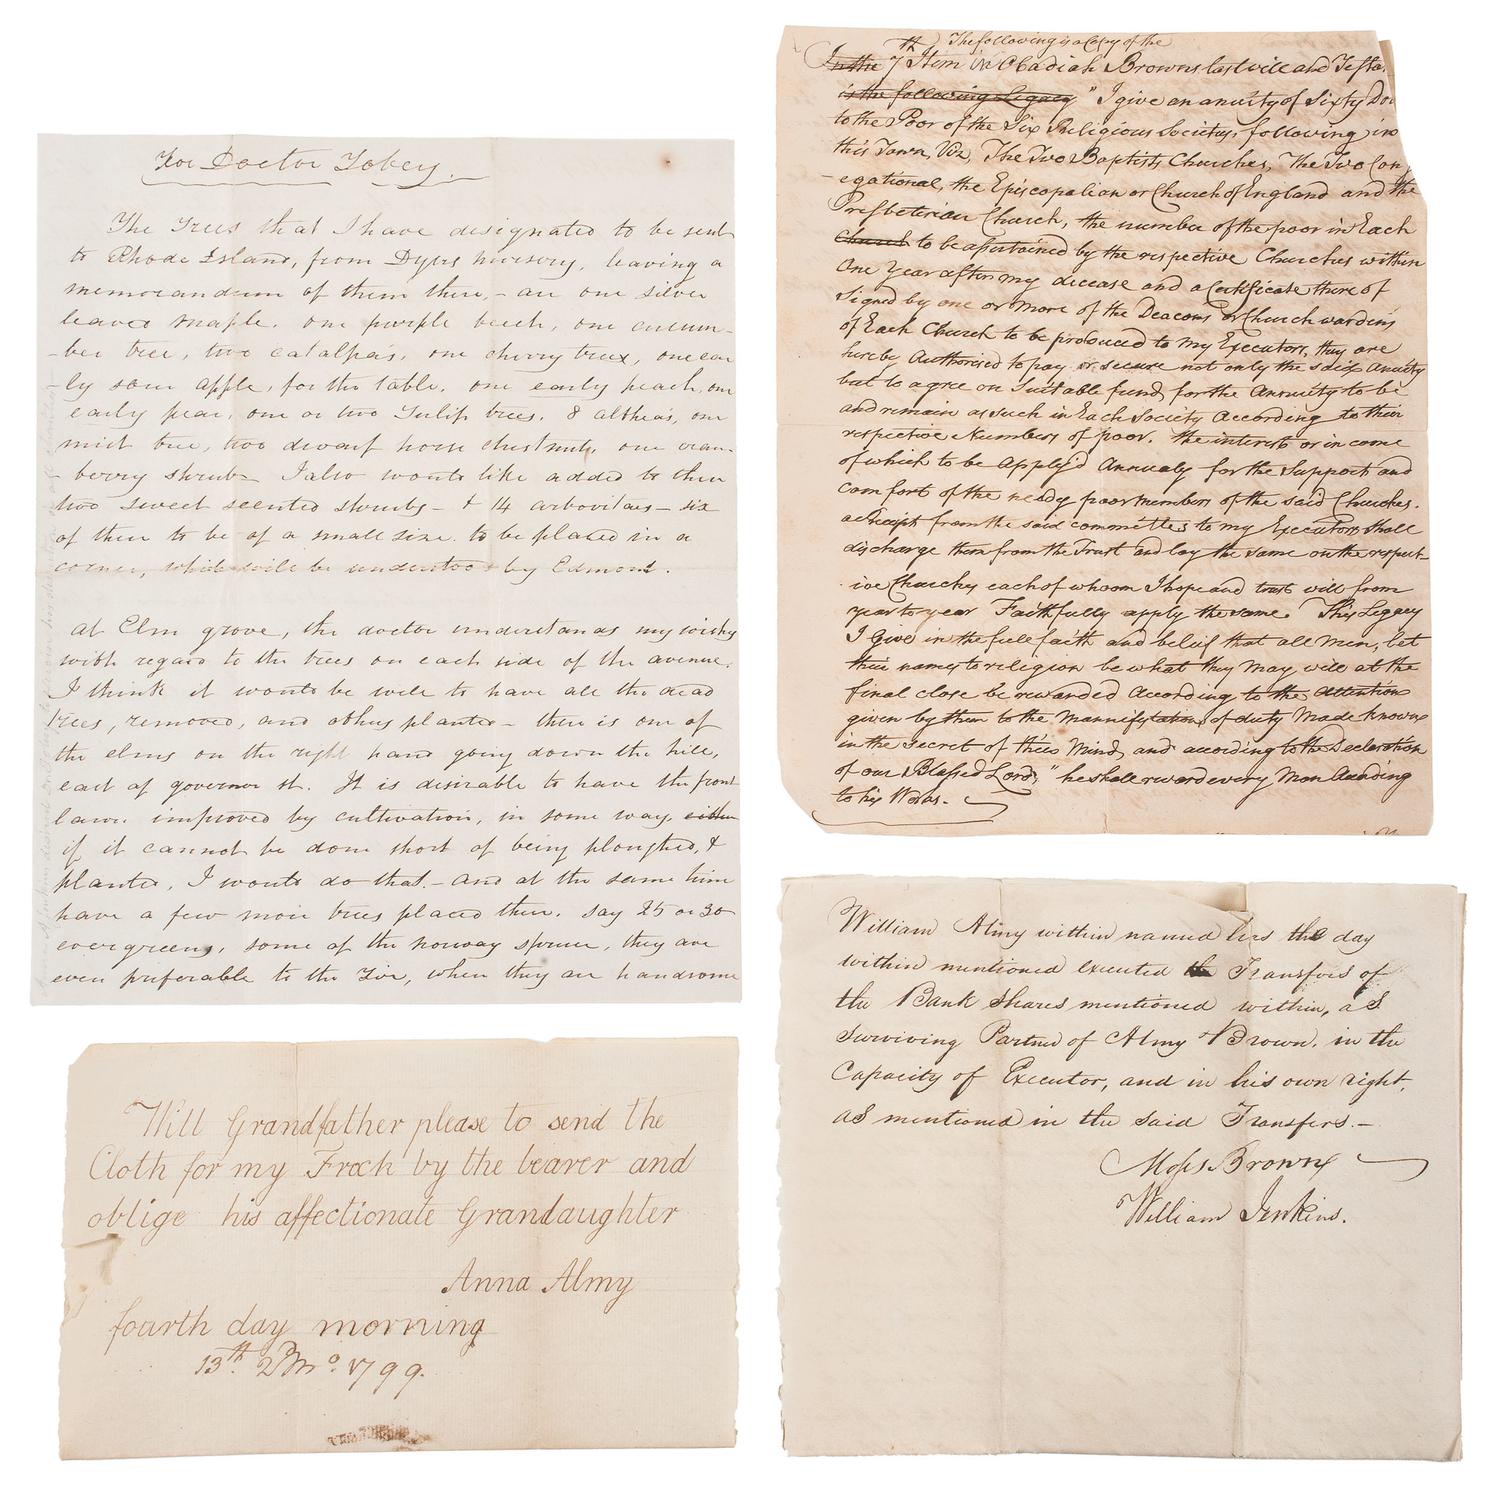 For Doctor Tobey.
The Trees that I have designated to be sent
to Rhode Island, from Dyers nursery, leaving a
memorandum of them there, - are one silver
leaved maple. one purple beech, one cucum-
-ber tree, two catalpas. one cherry tree, one ear
-ly sour apple, for the table. one early peach, one
early pear, one or two Tulip trees. 8 altheas, one
mist tree, two dwarf horse chestnuts, one cran-
-berry shrub - I also would like added to them
two sweet scented shrubs - & 14 arbovitaes - six
of them to be of a small size. to be placed in a
corner, which will be understood by Edmond.
At Elm grove, the doctor understands my wishes
with regard to the trees on each side of the avenue.
I think it would be well to have all the dead
trees, removed, and others planted - there is one of
the elms on the right hand going down the hill,
east of governor st. It is desirable to have the front
lawn improved by cultivation, in some way, either
if it cannot be done short of being ploughed, &
planted, I would do that. - and at the same time
have a few more trees placed there. say 25 or 30
evergreens, some of the norway spruce, they are
even preferable to the Fir, when they are handsome
The following is a Copy of the
In the 7th Item in Obadiah Browns last will and Testa
is the following Legacy "I give an anuity of Sixty Do
to the Poor of the Six Religious Societys, following in
this Town, Viz, The Two Baptists Churches, The Two Con
-egational, the Episcopalian or Church of England and the
Presbeterian Church, the number of the poor in Each
Church to be assertained by the respective Churches within
One Year after my decease and a Certificate there of
Signed by one or more of the Deacons or Church wardens
of Each Church to be produced to my Executors, they are
hereby Authorised to pay or secure not only the said Anuity
but to agree on Suitable fund, for the Annuity to be
and remain as such in Each Society According to their
respective Numbers of poor. the interest or in come
of which to be Apply'd Annualy for the Support and
comfort of the needy poor members of the said Churches.
a Receipt from the said committees to my Executors shall
discharge them from the Trust and lay the same on the respect-
ive Churches each of whom I hope and trust will from
year to year Faithfully apply the same. This Legacy
I Give in the full faith and belief that all Men, let
their names to religion be what they may will at the
final close be rewarded According to the Attention
given by them to the Mannifstations of duty Made known
in the secret of theire Mind, and according to the Decleration
of our Blessed Lord, "he shall reword every Man Acording
to his Works.
Will Grandfather please to send the
Cloth for my Frock by the bearer and
oblige his affectionate Grandaughter
Anna Almy
fourth day morning
13th 2Mo 1799.
William Almy within named hers the day
within mentioned executed the Transfers of
the Bank Shares mentioned within, as
Surviving Partner of Almy & Brown, in the
Capacity of Executor, and in his own right,
as mentioned in the said Transfers. -
Moses Brown
William Jenkins.